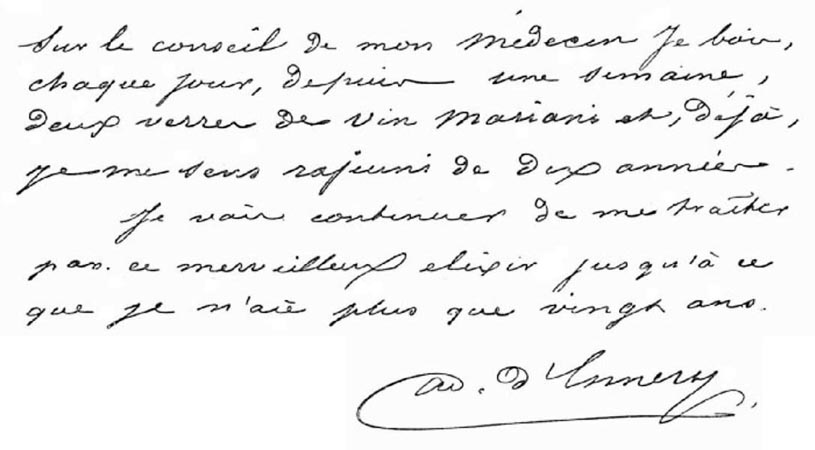 Sur le conseil de mon médecin Je bois,
chaque jour, depuis une semaine,
deux verres de vin Mariani et, déjà,
je me sens rajeuni de dix années.
Je vais continuer de me traiter
par ce merveilleux elixir jusqu'à ce
que je n'aie plus que vingt ans.
Ad. d'Ennery